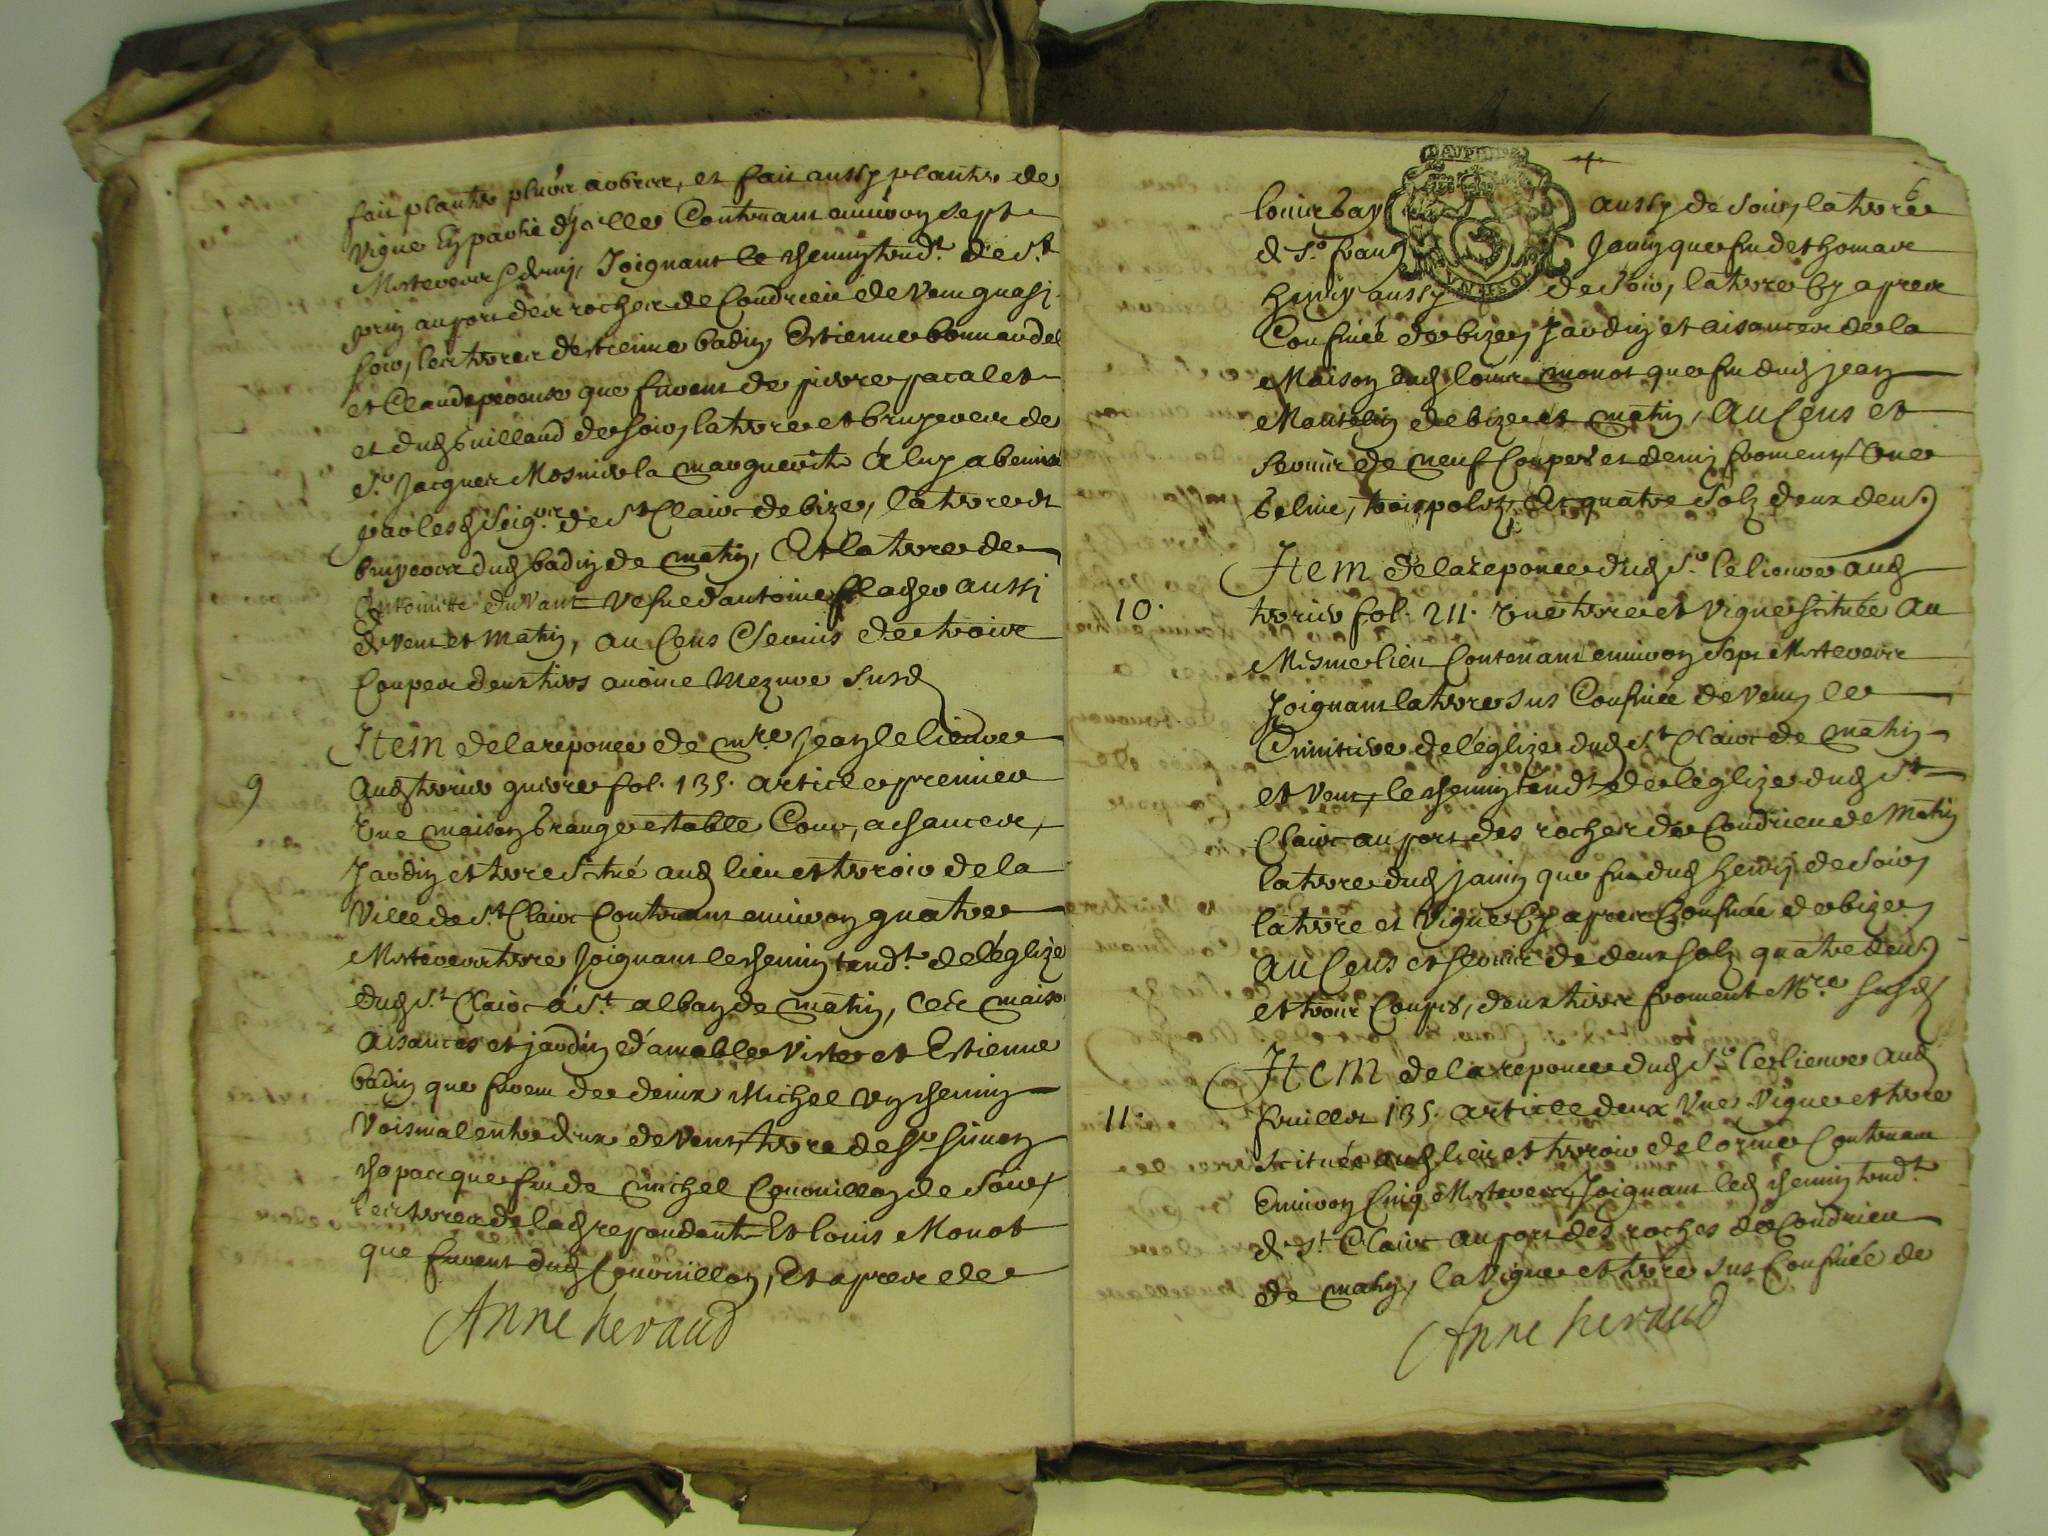 fait planter plusrs arbres, et fait aussy planter de
vigne En partie d'jcelle Contenant environ sept
Mesteyers & demy, Joignant le chemin tendt. de St.
au port des rocher de Condrieu de Vent
soir, les terres d'Estienne badin Estienne bonnardel
et Claude que furent de pierre pacalet
et dud Guilland de soir, la terre et bruyeres de
Sr. Jacques Mosnier la marguerite à luy
par les Seigrs. de St. Clair de bize, la terre et
bruyeres dud badin de matin, Et la terre de
Antoinette duvant vefue d'antoine flacher aussi
de vent et matin, au Cens & servis de trois
Coupes deux tiers auoine Mezure susd
Item de la reponce de mre. Jean le lieure
9 Aud terrier fol. 135. article premier
Vne maison Grange estable Cour, aisances,
Jardin et terre Scitué aud lieu et terroir de la
Ville de St. Clair Contenant environ quatre
Mesteyers terre Joignant le chemin tendt. de l'églize
dud St. Clair à St. alban de matin, les maiso
aisances et jardin d'amable Viste et Estienne
badin que furent de Michel un chemin
Voisinal entre deux de Vent, terre de Sr. simon
que fut de michel Couvillon de soir,
les terres de lad repondante Et louis Monot
que furent dud Couvillon, Et apres de
Anne heraud
6
DAUPHINE
louis bay aussy de soir, la terre
d Sr. franç Janin que fut de thomas
henry aussy de soir, la terre Cy apres
Confinée de bize, Jardin et aisances de la
Maison dud louis monot que fut dud jean
Mantelin de bize et matin, Au Cens et
servis de neuf Coupes et demy froment, Vne
Geline, trois polz, Et quatre Solz deux dens.
Item de la reponce dud Sr. le lieure aud
10. terrier fol. 211. Vne terre et Vigne scituée Au
Mesme lieu Contenant environ Sept Mesteyers
Joignant la terre sus Confinée de Vent, le
Cimitiere de l'églize dud St. Clair de matin
et Vent, le chemin tendt. de l'églize dud St.
Clair au port des rocher de Condrieu de Matin
la terre dud janin que fut dud henry de soir,
la terre et Vigne Cy apres Confinée de bize,
Au Cens et seruis de deux solz quatre dens.
et trois Coupes, deux tiers froment Mre susd
Item de la reponce dud Sr. le lieure Aud
11. feuillet 135. article deux Vne Vigne et terre
scituée aud lieu et terroir de lorme Contenant
Environ Cinq Mesteyers, Joignant led chemin tendt.
de St. Clair au port des roches de Condrieu
de matin, la Vigne et terre sus Confinée de
Anne heraud